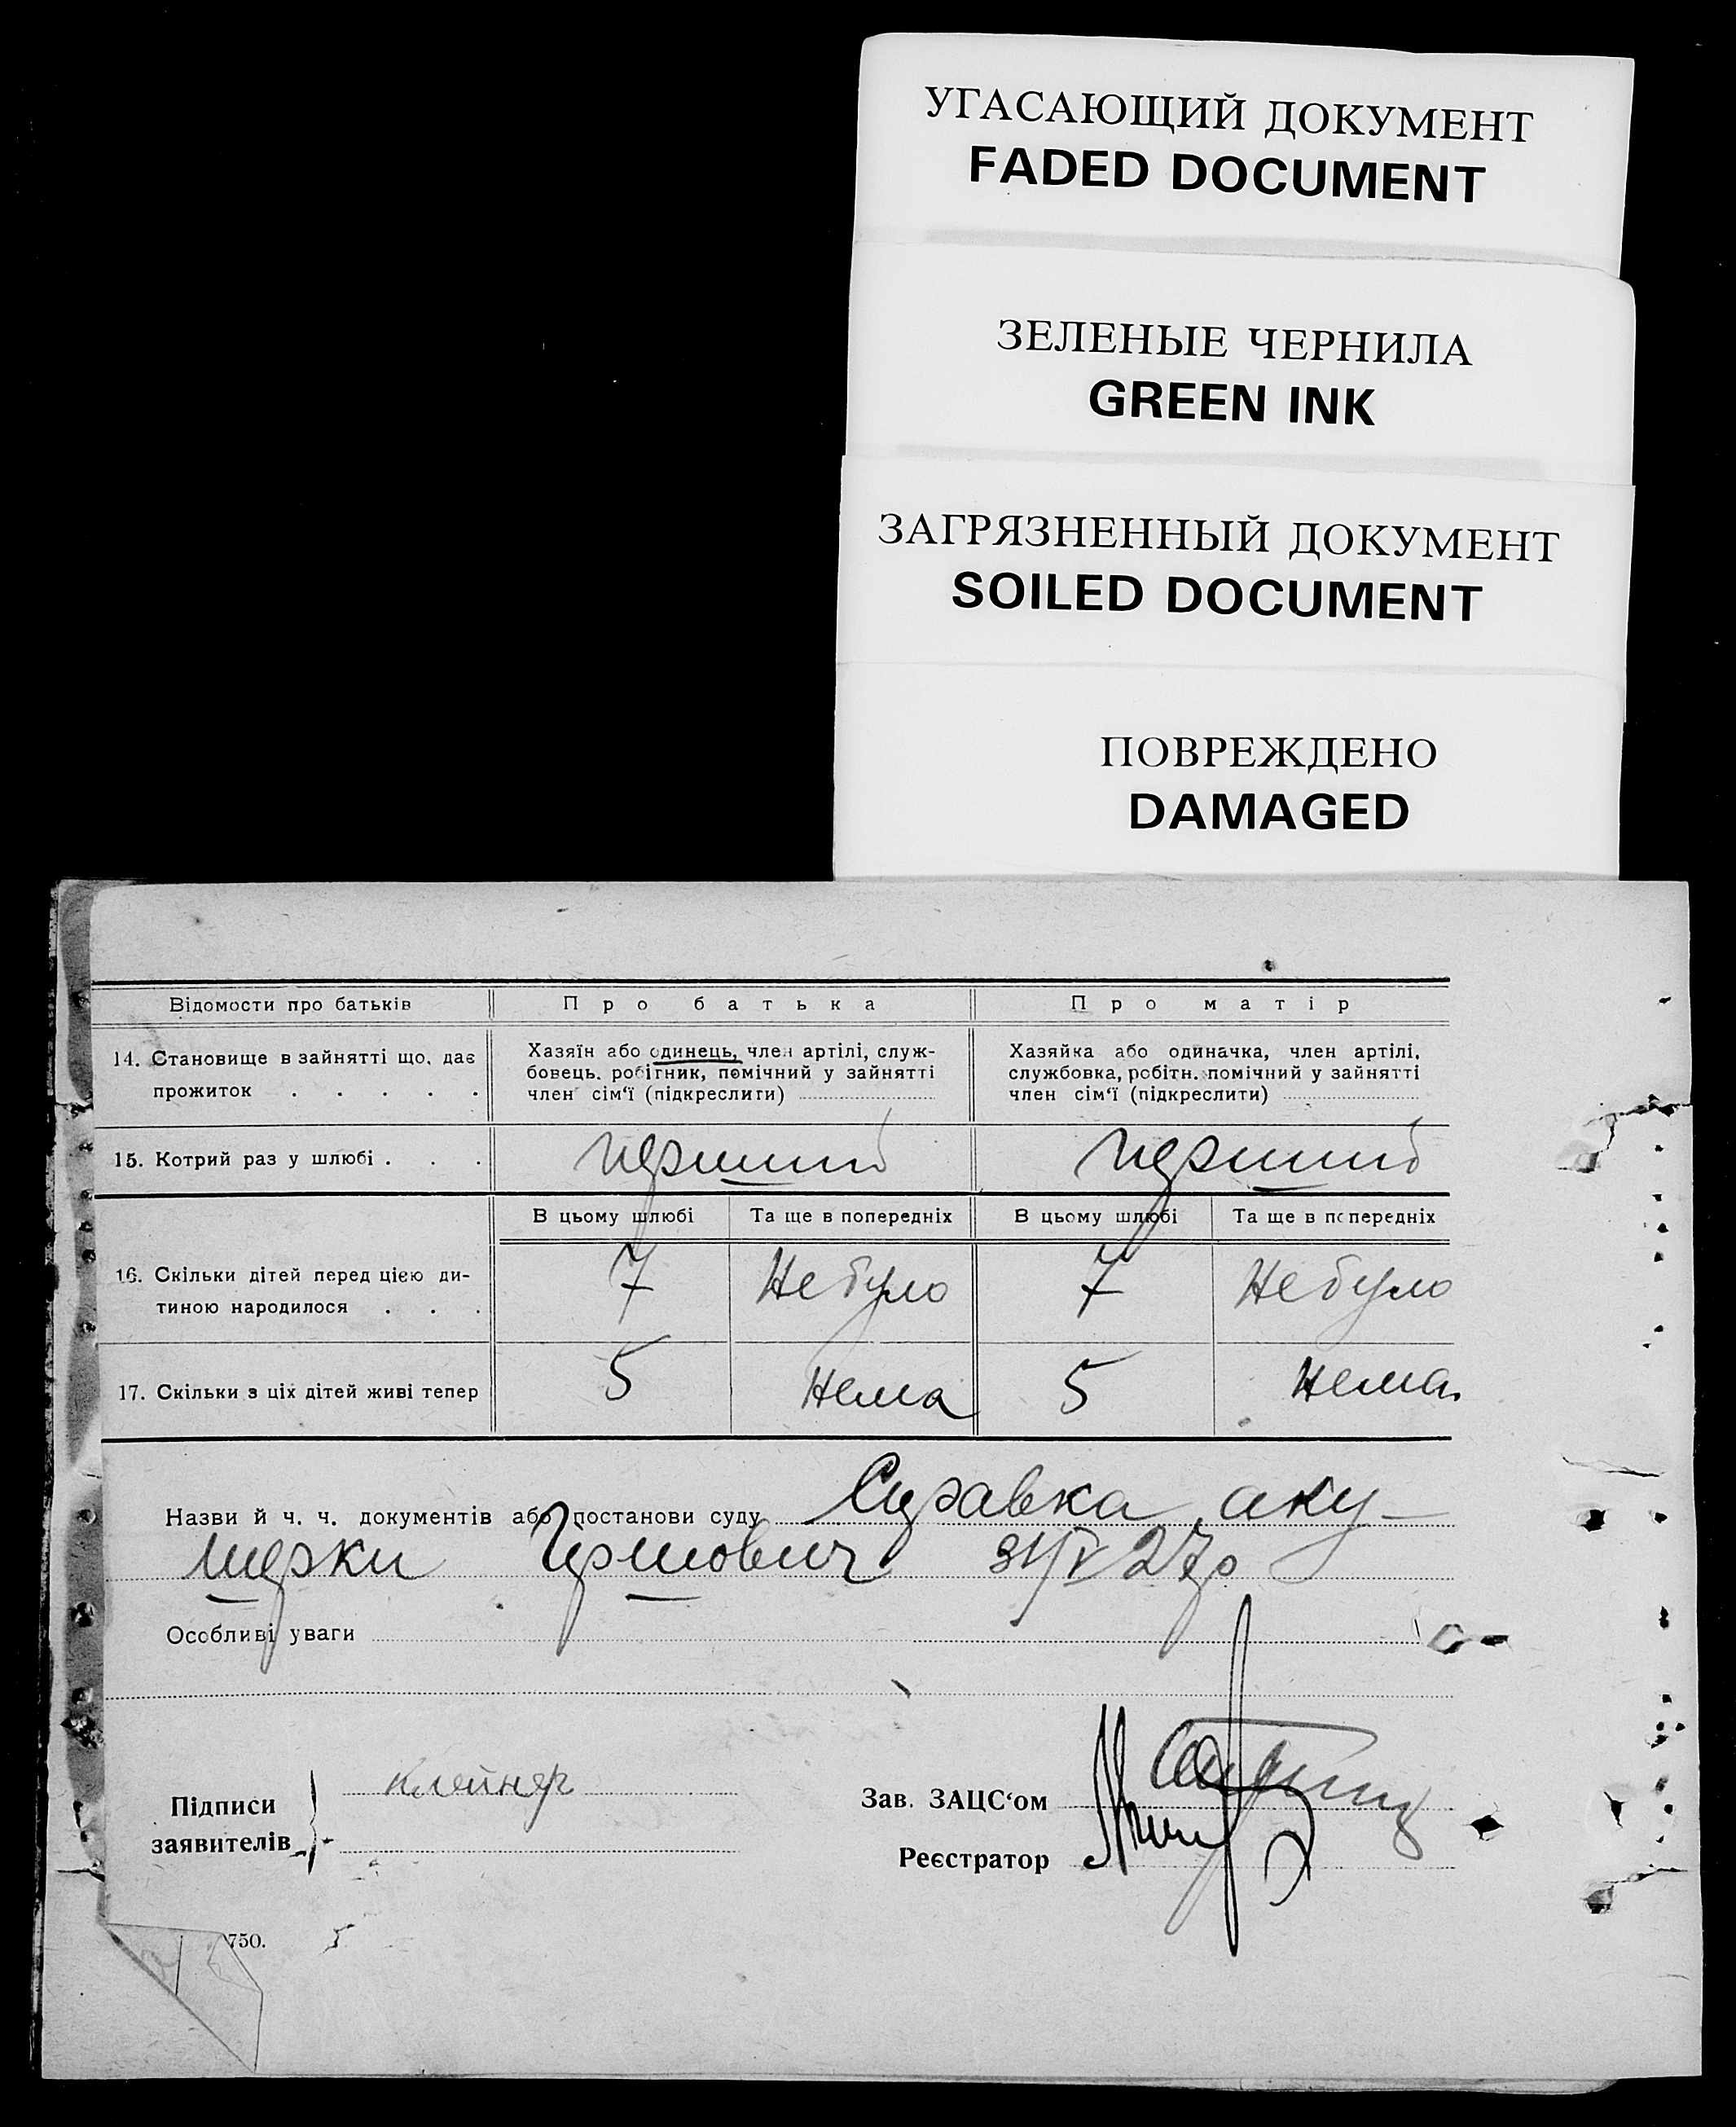 УГАСАЮЩИЙ ДОКУМЕНТ
FADED DOCUMENT
ЗЕЛЕНЫЕ ЧЕРНИЛА
GREEN INK
ЗАГРЯЗНЕННЫЙ ДОКУМЕНТ
SOILED DOCUMENT
ПОВРЕЖДЕНО
DAMAGED
Відомости про батьків Про батька Про матір
14. Становище в зайнятті що, дає
прожиток . . . . .
Хазяїн або одинець, член артілі, служ-
бовець. робітник, помічний у зайнятті
член сім'ї (підкреслити)
Хазяйка або одиначка, член артілі,
службовка, робітн. помічний у зайнятті
член сім'ї (підкреслити)
15. Котрий раз у шлюбі . . . перший перший
В цьому шлюбі Та ще в попередніх В цьому шлюбі Та ще в попередніх
16. Скільки дітей перед цією ди-
тиною народилося . . .
7 Не було 7 Не було
17. Скільки з ціх дітей живі тепер 5 Нема 5 Нема
Назви й ч. ч. документів або постанови суду Справка аку-
шерки Гіршович 31/V 27р
Особливі уваги
Підписи
заявителів
клейнер
Зав. ЗАЦС'ом
Реєстратор
750.